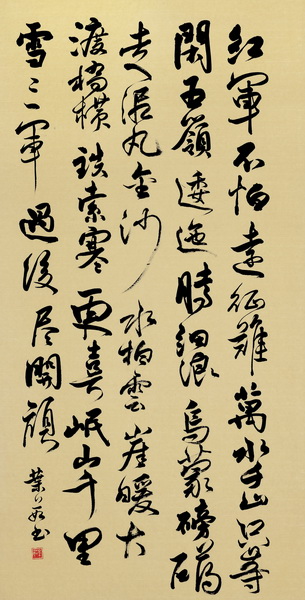 紅軍不怕遠征難萬水千山只等
閑五嶺逶迤騰細浪烏蒙磅礴
走泥丸金沙水拍雲崖暖大
渡橋橫鉄索寒更喜岷山千里
雪三軍過後尽開顏